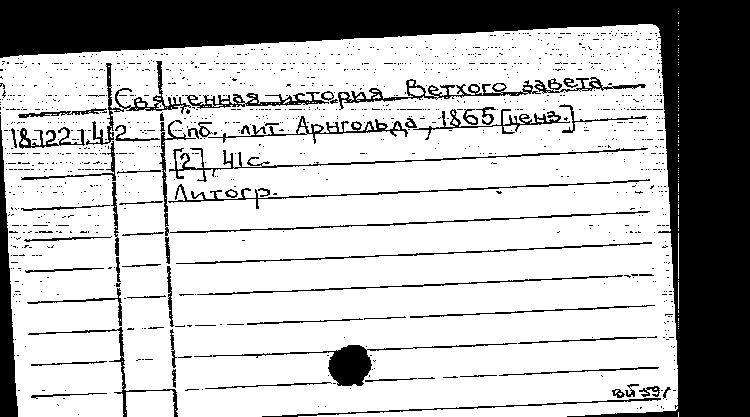 Священная история Ветхого завета.
18.122.1.412 Спб., лит. Арнгольда, 1865 [ценз.].
[2], 41 с.
Литогр.